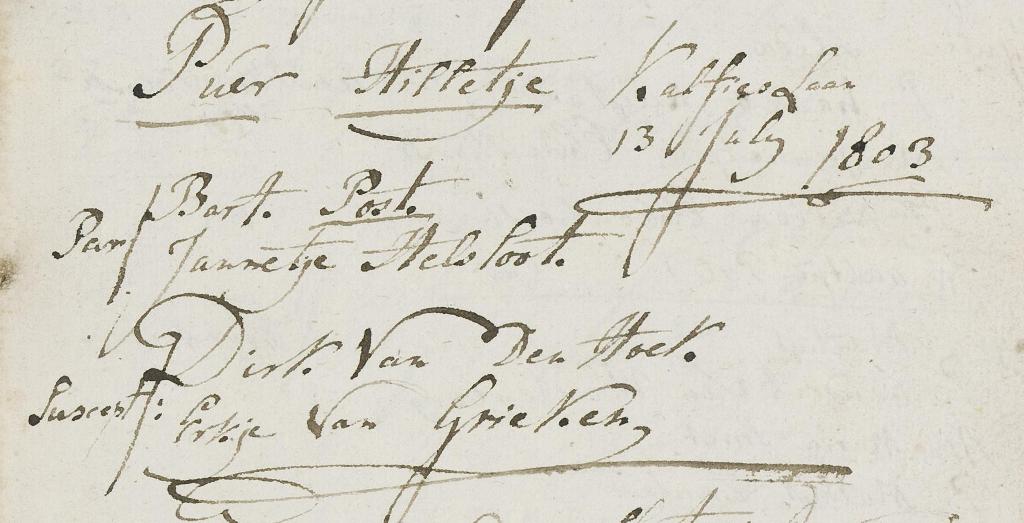 Puer Hilletje Kalfieslaan
13 July 1803
Par Bart. Post.
Jannetje Helsloot.
Dirk. Van Den Hoek.
Suscept: Van Grieken,